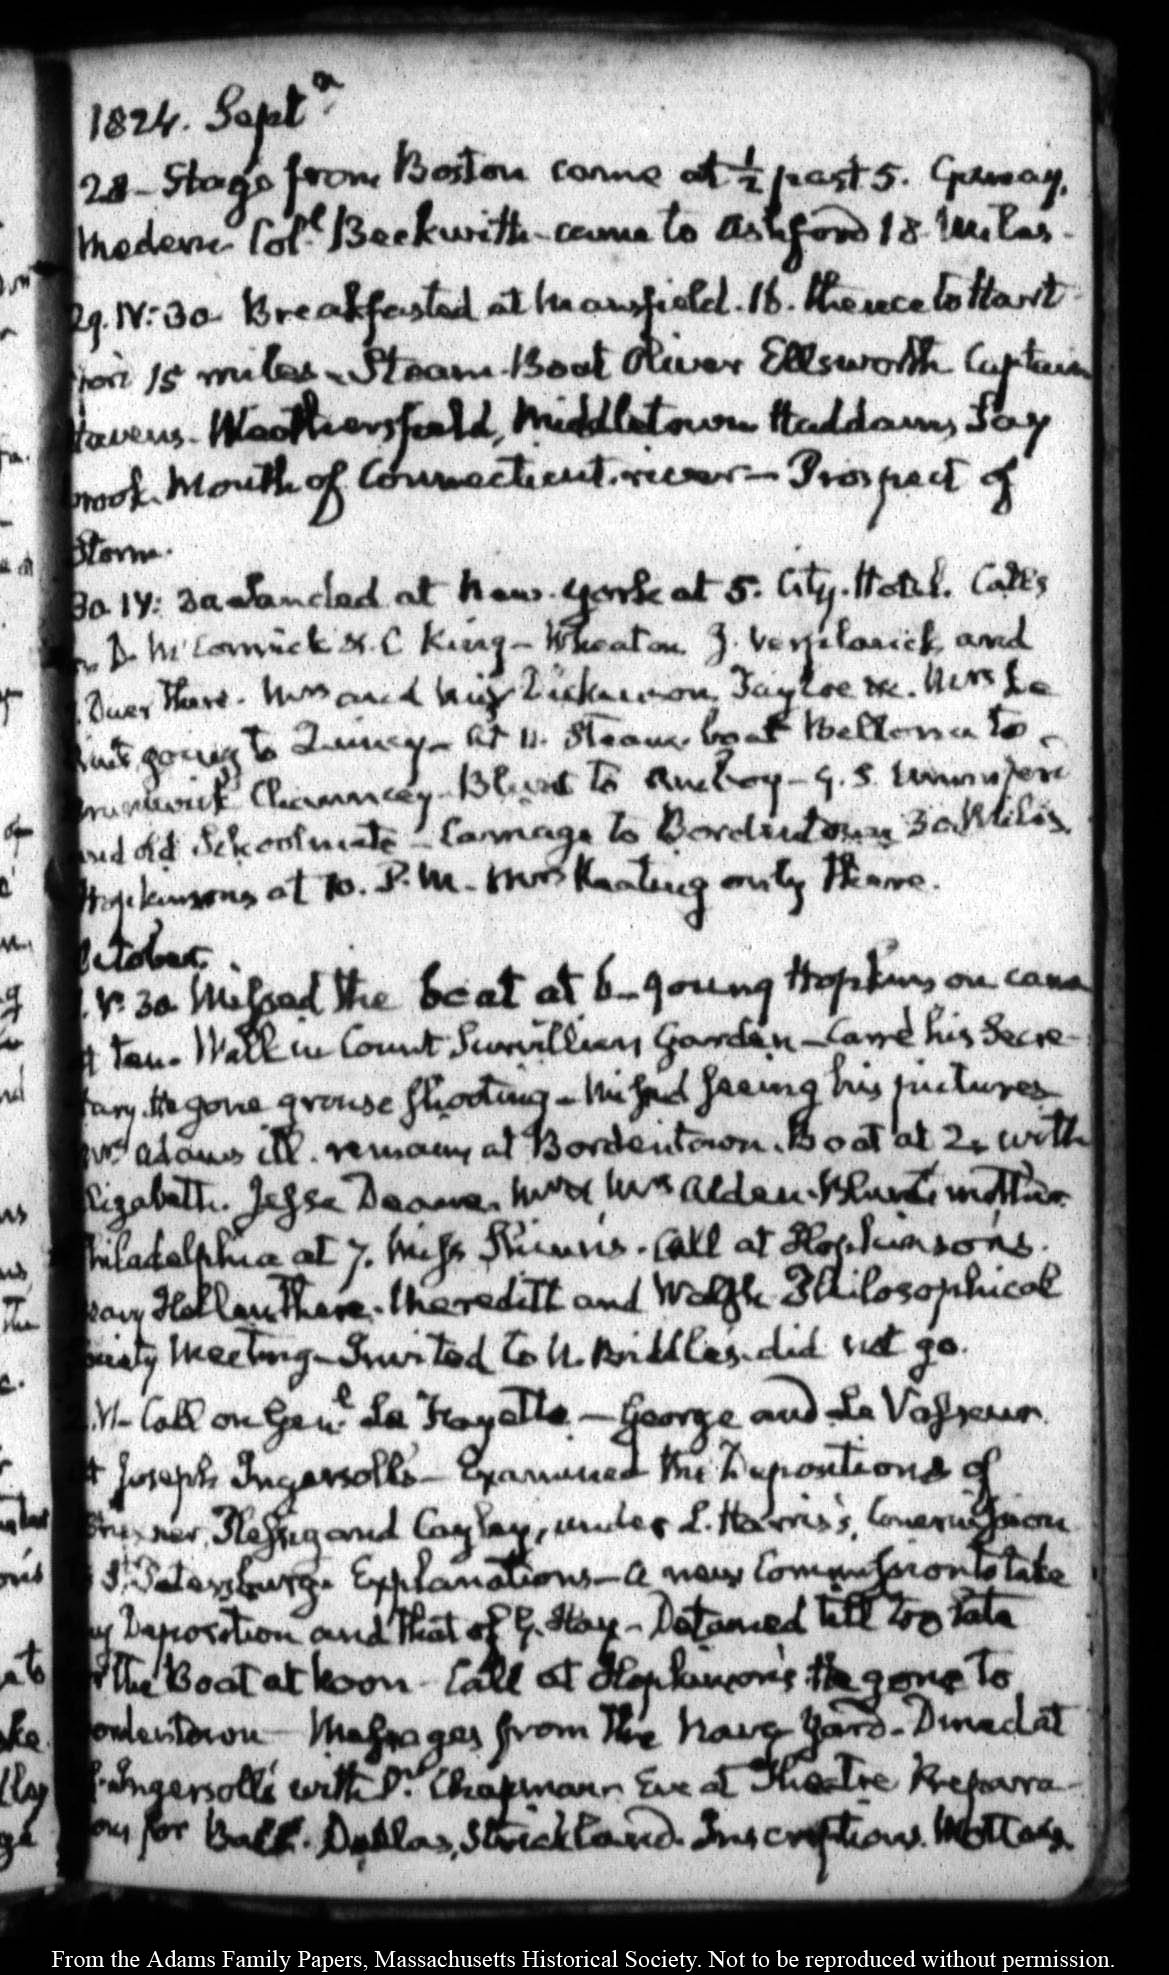 1824. Septr
28 - Stage from Boston came at ½ past 5.
Modern Coll. Beckwith - came to Ashford 18 Miles -
29. IV: 30. Breakfasted at Mansfield. 16. thence to Hart-
ford 15 miles - Steam-Boat Oliver Ellsworth Captain
Havens. Weathersfield, Middletown Haddams, Say
brook. Mouth of Connecticut river - Prospect of
Storm.
30. IV: 30. Landed at New-York at 5. City-Hotel. Calls
D. McCormick & C King - Wheaton J. Verplanck, and
Duer there. Mrs and Miss Dickinson, Tayloe &c. Mrs De
going to Quincy - At 11. Steam-boat Bellona to
Brunswick Chauncey - Blunt to Amboy - G. S.
and old Schoolmate - Carriage to Bordentown 30 Miles.
Hopkinsons at 10. P.M. Mrs Keating only there.
October.
1. V: 30. Missed the boat at 6 - young Hopkinson came
at ten. Walk in Count Survilliers Garden - Carré his Secre-
tary. He gone grouse shooting - Missed seeing his pictures
Mrs Adams ill. remains at Bordentown. Boat at 2. with
Elizabeth. Jesse Deane. Mr & Mrs Alden. Blunt's mother.
Philadelphia at 7. Miss Call at Hopkinson's.
there. Meredith and Walsh. Philosophical
Society Meeting - Invited to N. Biddle's. did not go.
2. VI - Call on Genl La Fayette - George and Le Vasseur
at Joseph Ingersoll's - Examined the Depositions of
and Cayley, under L. Harris's, Commission
St. Petersburg. Explanations - A new Commission to take
my Deposition and that of G. Hay - Detained till too late
for the Boat at Noon - Call at Hopkinson's He gone to
Bordentown - Messages from the Navy Yard - Dined at
J. Ingersoll's with Dr. Chapman. Eve at Theatre Prepara-
tions for Ball. Dallas, Strickland. Inscriptions. Mottoes.
From the Adams Family Papers, Massachusetts Historical Society. Not to be reproduced without permission.